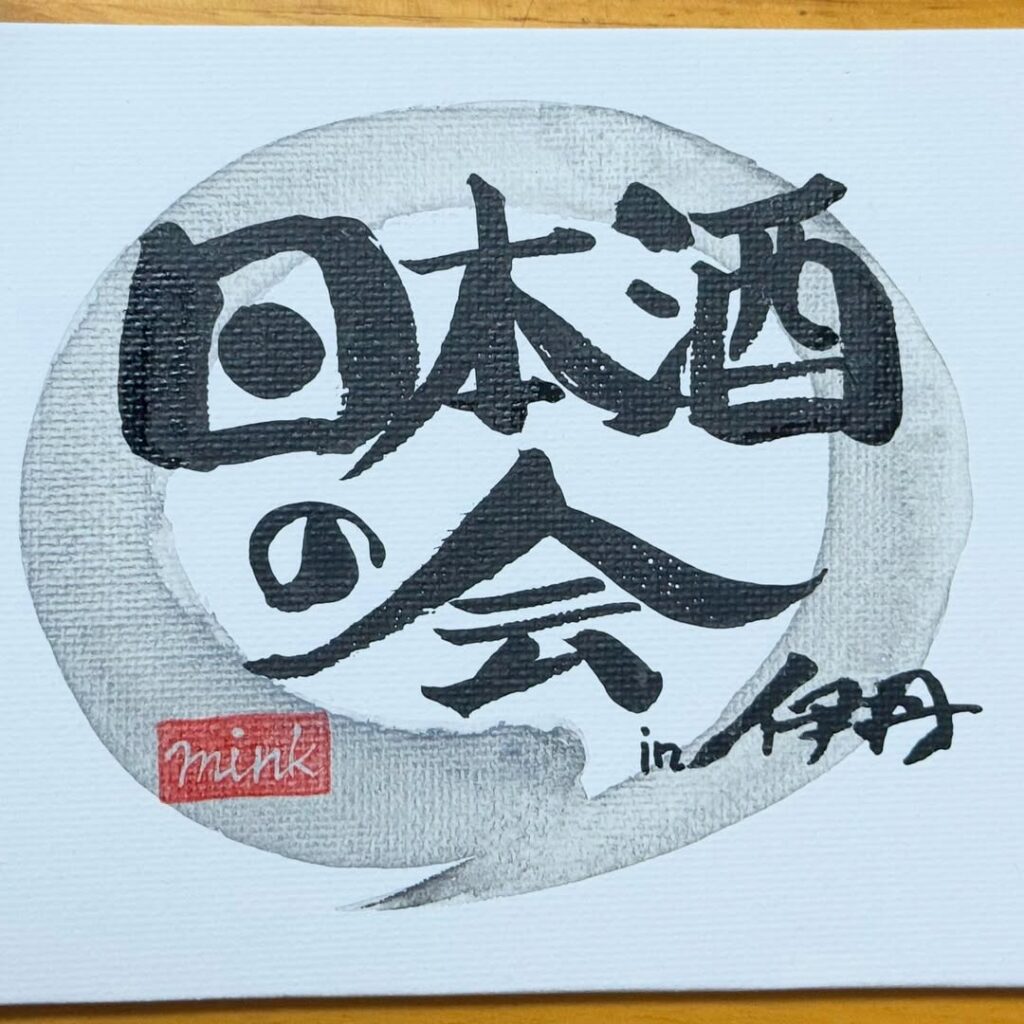 日本酒
の会
in 伊丹
mink